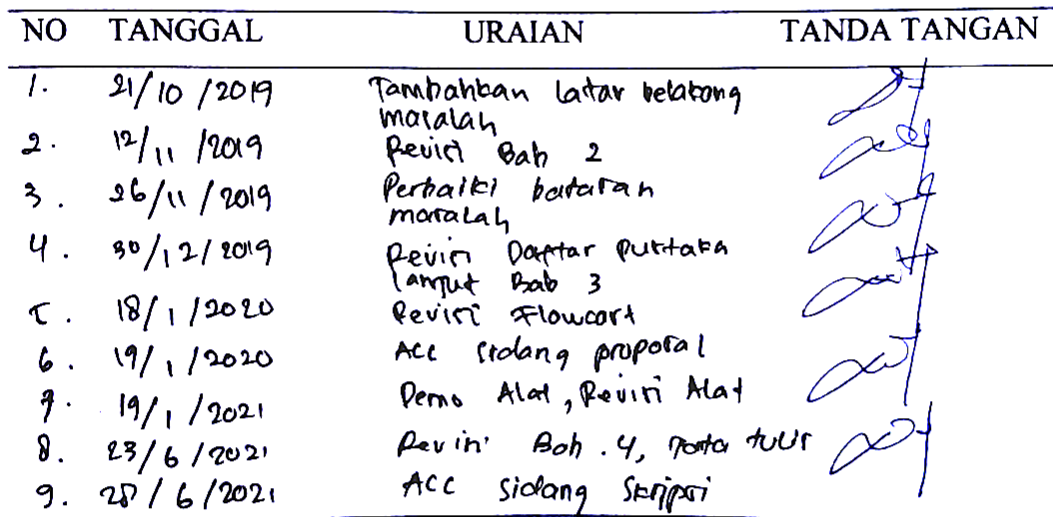 NO TANGGAL URAIAN TANDA TANGAN
1. 21/10/2019 Tambahkan latar belakang
masalah
2. 12/11/2019 Revisi Bab 2
3. 26/11/2019 Perbaiki batasan
masalah
4. 30/12/2019 Revisi Daftar Pustaka
lanjut Bab 3
5. 18/1/2020 Revisi Flowcart
6. 19/1/2020 ACC sidang proposal
7. 19/1/2021 Demo Alat, Revisi Alat
8. 23/6/2021 Revisi Bab.4, tata tulis
9. 28/6/2021 ACC Sidang Skripsi